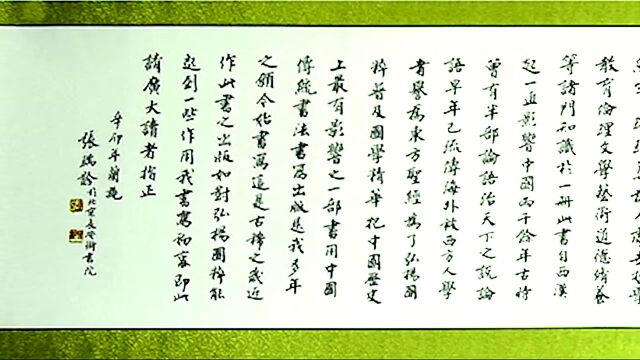 教育倫理文學藝術道德養
等諸門知識於一冊此書自西漢
起一直影響中國兩千餘年古時
曾有半部論語治天下之說論
語早年已流傳海外被西方人學
者譽為東方聖經為了弘揚國
粹普及國學精華把中國歷史
上最有影響之一部書用中國
傳統書法書寫出版是我多年
之願今始書寫這是古稀之歲近
作此書之出版如對弘揚國粹能
起到一些作用我書寫初衷即此
請廣大讀者指正
辛卯年
張瑞齡於北京長安術書院